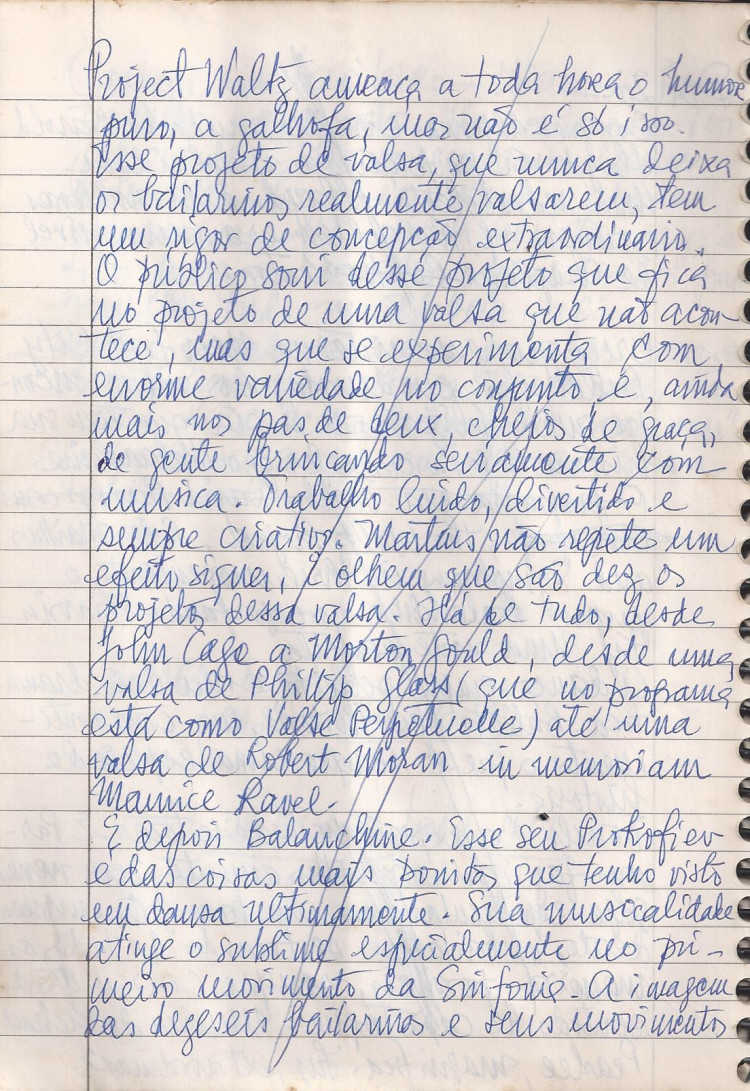 Project Waltz ameaça a toda hora o humor
puro, a galhofa, mas não é só isso.
Esse projeto de valsa, que nunca deixa
os bailarinos realmente valsarem, tem
um rigor de concepção extraordinário.
O público sorri desse projeto que fica
no projeto de uma valsa que não acon-
tece, mas que se experimenta com
enorme variedade no conjunto e, ainda
mais nos pas de deux, cheios de graça,
de gente brincando seriamente com
música. Trabalho lúcido, divertido e
sempre criativo. Martins não repete um
efeito siquer, e olhem que são dez os
projetos dessa valsa. Há de tudo, desde
John Cage a Morton Gould, desde uma
valsa de Phillip Glass (que no programa
está como Valse Perpetuelle) até uma
valsa de Robert Moran in memoriam
Maurice Ravel.
E depois Balanchine. Esse seu Prokofiev
é das coisas mais bonitas que tenho visto
em dansa ultimamente. Sua musicalidade
atinge o sublime especialmente no pri-
meiro movimento da Sinfonia. A imagem
das dezeseis bailarinos e seus movimentos